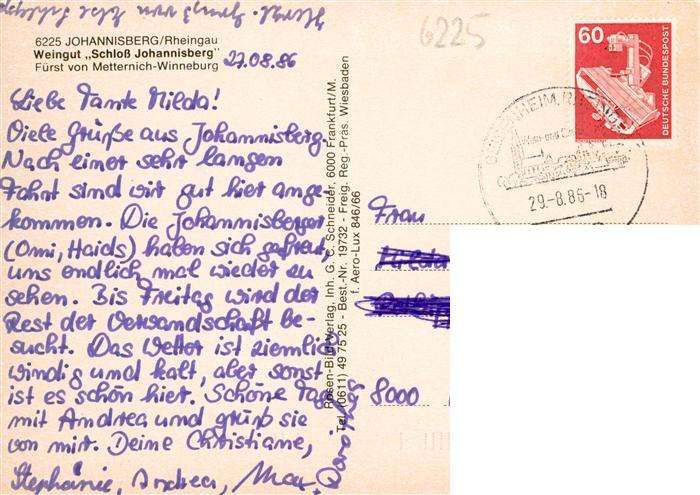 6225
6225 JOHANNISBERG/Rheingau
Weingut „Schloß Johannisberg"
Fürst von Metternich-Winneburg
27.08.86
Liebe Tante Milda!
Viele Grüße aus Johannisberg.
Nach einer sehr langen
Fahrt sind wir gut hier ange-
kommen. Die Johannisberger
(Omi, Haids) haben sich gefreut,
uns endlich mal wieder zu
sehen. Bis Freitag wird der
Rest der Verwandschaft be-
sucht. Das Wetter ist ziemlich
windig und kalt, aber sonst
ist es schön hier. Schöne Tage
mit Andrea und grüß sie
von mir. Deine Christiane,
Stephanie, Andrea, Max, Dorothee
Herzl.
von
Rosen-Bild-Verlag, Inh. G. C. Schneider, 6000 Frankfurt/M.
Tel. (0611) 49 75 25 - Best.-Nr. 19732 - Freig. Reg.-Präs. Wiesbaden
f. Aero-Lux 846/66
60
DEUTSCHE BUNDESPOST
29.-8.86-18
Frau
8000